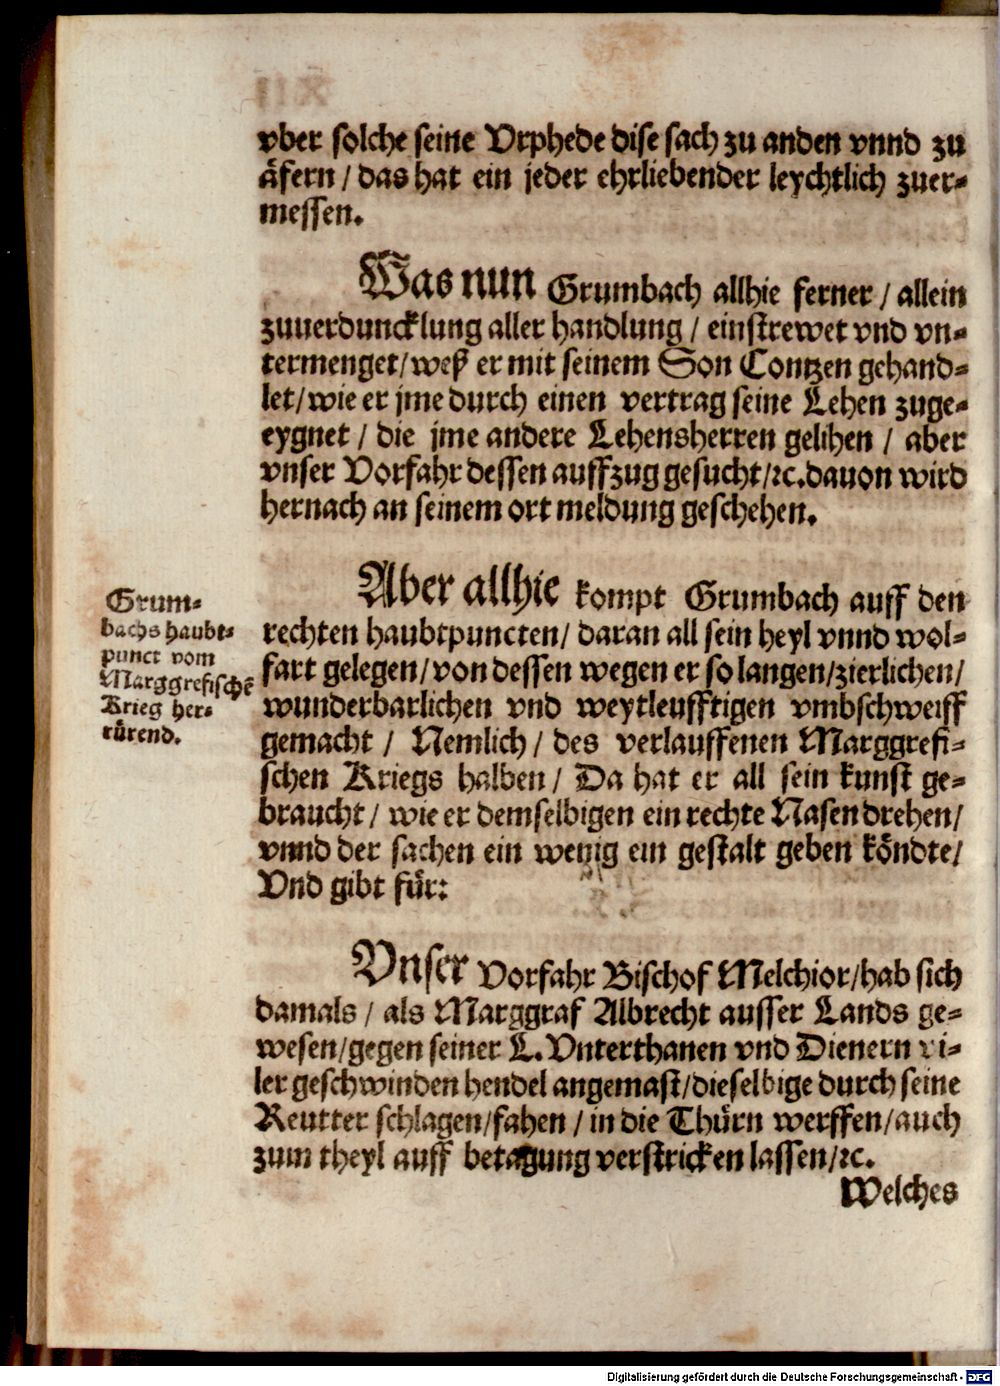 vber solche seine Vrphede dise sach zu anden vnnd zu
äfern / das hat ein jeder ehrliebender leychtlich zuer-
messen.
Was nun Grumbach allhie ferner / allein
zuuerduncklung aller handlung / einstrewet vnd vn-
termenget / weß er mit seinem Son Contzen gehand-
let / wie er jme durch einen vertrag seine Lehen zuge-
eygnet / die jme andere Lehensherren gelihen / aber
vnser Vorfahr dessen auffzug gesucht / ꝛc. dauon wird
hernach an seinem ort meldung geschehen.
Grum-
bachs haubt-
punct vom
Marggrefischẽ
Krieg her-
rürend.
Aber allhie kompt Grumbach auff den
rechten haubtpuncten / daran all sein heyl vnnd wol-
fart gelegen / von dessen wegen er so langen / zierlichen /
wunderbarlichen vnd weytleufftigen vmbschweiff
gemacht / Nemlich / des verlauffenen Marggrefi-
schen Kriegs halben / Da hat er all sein kunst ge-
braucht / wie er demselbigen ein rechte Nasen drehen /
vnnd der sachen ein wenig ein gestalt geben köndte /
Vnd gibt für:
Vnser Vorfahr Bischof Melchior / hab sich
damals / als Marggraf Albrecht ausser Lands ge-
wesen / gegen seiner L. Vnterthanen vnd Dienern vi-
ler geschwinden hendel angemast / dieselbige durch seine
Reutter schlagen / fahen / in die Thürn werffen / auch
zum theyl auff betagung verstricken lassen / ꝛc.
Welches
Digitalisierung gefördert durch die Deutsche Forschungsgemeinschaft - DFG